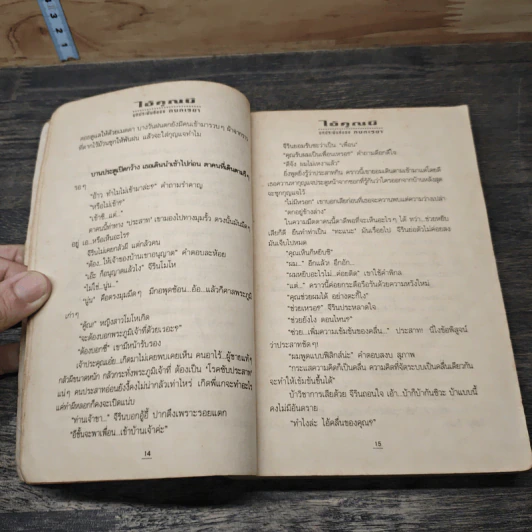 ไอ้คุณผี
คอยดูแลให้ด้วยเมตตา บางวันฝนตกยังมีคนเข้ามารวบๆ ผ้า
ที่ตากไว้เป็นชุกให้พ้นฝน แล้วจะใส่กุญแจทำไม
บานประตูเปิดกว้าง เธอเดินนำเข้าไปก่อน ตาคนที่เดินตามถึง
รอๆ
"อ้าว ทำไมไม่เข้ามาล่ะ" คำถามรำคาญ
"หรือไม่เข้า"
"เข้าซิ..แต่.."
ตาคนนี้ท่าทาง "ประสาท" เขามองไปทางมุมรั้ว ตรงนั้นมันมืดๆ
อยู่ เอ..หรือเห็นอะไร?
จีรินไม่เคยกลัวผี แต่กลัวคน
"ต้อง..ให้เจ้าของบ้านเขาอนุญาต" คำตอบละห้อย
"เอ๊ะ ก็อนุญาตแล้วไง" จีรินโมโห
"ไม่ใช่..นู่น.."
"นู่น" คือตรงมุมมืดๆ มีกอพุดซ้อน..อ้อ..แล้วก็ศาลพระภูมิ
เก่าๆ
"ตู๊ณ" หญิงสาวโมโหเกิด
"จะต้องบอกพระภูมิเจ้าที่ด้วยเรอะ"
"ต้องบอกซี" เขามีหน้ารับรอง
เจ้าประคุณเอ๊ย..เกิดมาไม่เคยพบเคยเห็น คนอาไร้..ผู้ชายแท้ๆ
กลัวผีขนาดหนัก กลัวกระทั่งพระภูมิเจ้าที่ ต้องเป็น "โรคขี้ประสาท"
แน่ๆ คนประสาทอ่อนยังงี้คงไม่น่ากลัวเท่าไหร่ เกิดพี่แกจะทำอะไร
แค่ทำผีหลอกก็คงจะเปิดแน่บ
"ท่านเจ้าขา.." จีรินบอกอู้อี้ ปากดึงเพราะรอยแตก
"อีชั้นจะพาเพื่อน..เข้าบ้านเจ้าค่ะ"
14
ไอ้คุณผี
จีรินยอมรับซะว่าเป็น "เพื่อน"
"คุณรับผมเป็นเพื่อนเหรอ" คำถามดีอกดีใจ
"ดีจัง ผมไม่เหงาแล้ว"
"ไม่มีหรอก" เขาบอกเสียงก่อนที่เธอจะควานพบแต่ความว่างเปล่า
"ตกอยู่ข้างล่าง"
"คุณเห็นก็หยิบซี"
"ผม.." อีกแล้ว อึกอัก..
"ผมหยิบอะไรไม่..ค่อยติด" เขาใช้คำพิกล
"แต่.." คราวนี้ค่อยกระดือรือร้นด้วยความหวังใหม่
"คุณช่วยผมได้ อย่างคะกี้ไง"
"ช่วยเหรอ" จีรินประหลาดใจ
"ช่วยยังไง ตอนไหนฯ"
"ช่วย..เพิ่มความเข้มข้นของคลื่น.." ประสาท นี่ไงข้อพิสูจน์
ว่าประสาทชัดๆ!
"ผมพูดแบบฟิสิกส์น่ะ" คำตอบสงบ สุภาพ
"กระแสความคิดก็เป็นคลื่น ความคิดที่จัดระบบเป็นคลื่นเดียวกัน
จะทำให้เข้มข้นขึ้นได้"
บ้าวิชาการเสียด้วย จีรินถอนใจ เอ้า..บ้าก็บ้ากันซิวะ บ้าแบบนี้
คงไม่มีอันตราย
"ทำไงล่ะ ไอ้คลื่นของคุณ"
15